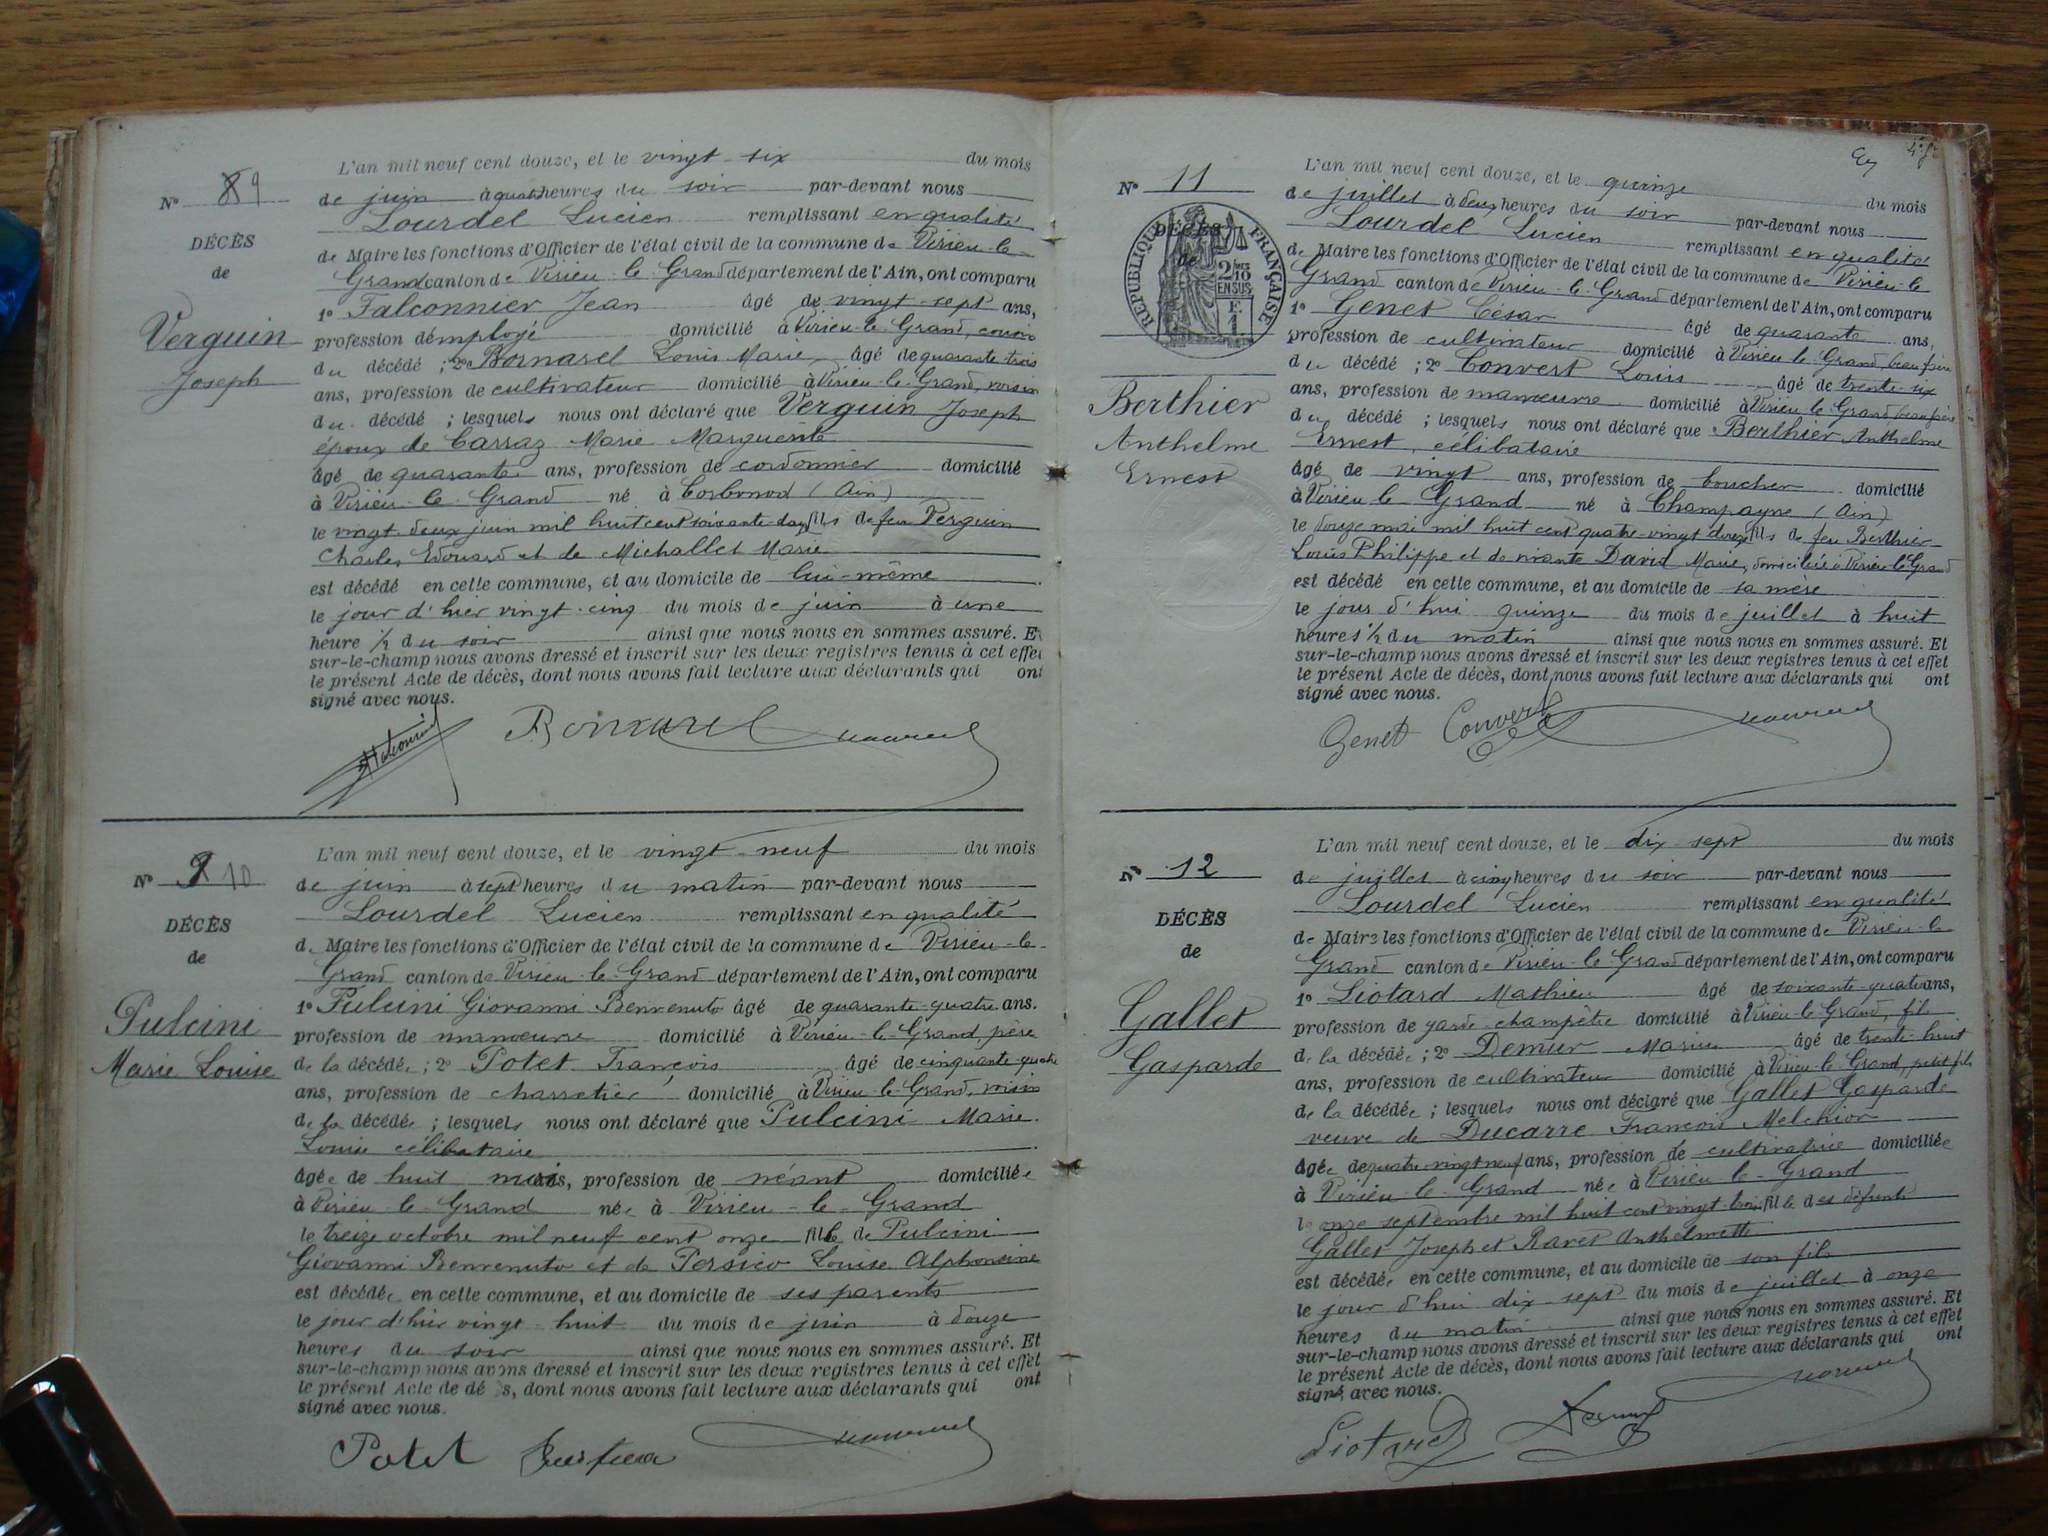 N° 89
DÉCÈS
de
Verguin
Joseph
L'an mil neuf cent douze, et le vingt-six du mois
de juin à quatre heures du soir par-devant nous
Lourdel Lucien remplissant en qualité
de Maire les fonctions d'Officier de l'état civil de la commune de Virieu-le-
Grand canton de Virieu-le-Grand département de l'Ain, ont comparu
1° Falconnier Jean âgé de vingt-sept ans,
profession d'employé domicilié à Virieu-le-Grand, cousin
du décédé ; 2° Bornarel Louis Marie âgé de quarante-trois
ans, profession de cultivateur domicilié à Virieu-le-Grand, voisin
du décédé ; lesquels nous ont déclaré que Verguin Joseph
époux de Carraz Marie Marguerite
âgé de quarante ans, profession de cordonnier domicilié
à Virieu-le-Grand né à Corbonod (Ain)
le vingt-deux juin mil huit cent soixante-douze fils de feu Verguin
Charles Edouard et de Michallet Marie
est décédé en cette commune, et au domicile de lui-même
le jour d'hier vingt-cinq du mois de juin à une
heure ½ du soir ainsi que nous nous en sommes assuré. Et
sur-le-champ nous avons dressé et inscrit sur les deux registres tenus à cet effet
le présent Acte de décès, dont nous avons fait lecture aux déclarants qui ont
signé avec nous.
Bornarel
N° 9 10
DÉCÈS
de
Pulcini
Marie Louise
L'an mil neuf cent douze, et le vingt-neuf du mois
de juin à sept heures du matin par-devant nous
Lourdel Lucien remplissant en qualité
de Maire les fonctions d'Officier de l'état civil de la commune de Virieu-le-
Grand canton de Virieu-le-Grand département de l'Ain, ont comparu
1° Pulcini Giovanni Benvenuto âgé de quarante-quatre ans.
profession de manœuvre domicilié à Virieu-le-Grand, père
de la décédée ; 2° Potet François âgé de cinquante-quatre
ans, profession de charretier domicilié à Virieu-le-Grand, voisin
de la décédée ; lesquels nous ont déclaré que Pulcini Marie
Louise célibataire
âgée de huit mois, profession de néant domiciliée
à Virieu-le-Grand née à Virieu-le-Grand
le treize octobre mil neuf cent onze fille de Pulcini
Giovanni Benvenuto et de Persico Louise Alphonsine
est décédée en cette commune, et au domicile de ses parents
le jour d'hier vingt-huit du mois de juin à douze
heures du soir ainsi que nous nous en sommes assuré. Et
sur-le-champ nous avons dressé et inscrit sur les deux registres tenus à cet effet
le présent Acte de décès, dont nous avons fait lecture aux déclarants qui ont
signé avec nous.
Potet
N° 11
DÉCÈS
de
RÉPUBLIQUE FRANÇAISE
2/10
EN SUS
F.
1.
Berthier
Anthelme
Ernest
L'an mil neuf cent douze, et le quinze du mois
de juillet à deux heures du soir par-devant nous
Lourdel Lucien remplissant en qualité
de Maire les fonctions d'Officier de l'état civil de la commune de Virieu-le
Grand canton de Virieu-le-Grand département de l'Ain, ont comparu
1° Genet César âgé de quarante ans,
profession de cultivateur domicilié à Virieu-le-Grand, beau-frère
du décédé ; 2° Convert Louis âgé de trente-six
ans, profession de manœuvre domicilié à Virieu-le-Grand beau-frère
du décédé ; lesquels nous ont déclaré que Berthier Anthelme
Ernest, célibataire
âgé de vingt ans, profession de boucher domicilié
à Virieu-le-Grand né à Champagne (Ain)
le douze mai mil huit cent quatre-vingt-douze fils de feu Berthier
Louis Philippe et de vivante David Marie, domiciliée à Virieu-le-Grand
est décédé en cette commune, et au domicile de sa mère
le jour d'hui quinze du mois de juillet à huit
heures ½ du matin ainsi que nous nous en sommes assuré. Et
sur-le-champ nous avons dressé et inscrit sur les deux registres tenus à cet effet
le présent Acte de décès, dont nous avons fait lecture aux déclarants qui ont
signé avec nous.
Genet Convert
N° 12
DÉCÈS
de
Gallet
Gasparde
L'an mil neuf cent douze, et le dix-sept du mois
de juillet à cinq heures du soir par-devant nous
Lourdel Lucien remplissant en qualité
de Maire les fonctions d'Officier de l'état civil de la commune de Virieu-le
Grand canton de Virieu-le-Grand département de l'Ain, ont comparu
1° Liotard Mathieu âgé de soixante-quatre ans,
profession de garde-champêtre domicilié à Virieu-le-Grand, fils
de la décédée ; 2° Demur Marius âgé de trente-huit
ans, profession de cultivateur domicilié à Virieu-le-Grand, petit-fils
de la décédée ; lesquels nous ont déclaré que Gallet Gasparde
veuve de Ducarre François Melchior
âgée de quatre-vingt neuf ans, profession de cultivatrice domiciliée
à Virieu-le-Grand née à Virieu-le-Grand
le onze septembre mil huit cent vingt-trois fille des défunts
Gallet Joseph et Ravet Anthelmette
est décédée en cette commune, et au domicile de son fils
le jour d'hui dix-sept du mois de juillet à onze
heures du matin ainsi que nous nous en sommes assuré. Et
sur-le-champ nous avons dressé et inscrit sur les deux registres tenus à cet effet
le présent Acte de décès, dont nous avons fait lecture aux déclarants qui ont
signé avec nous.
Liotard